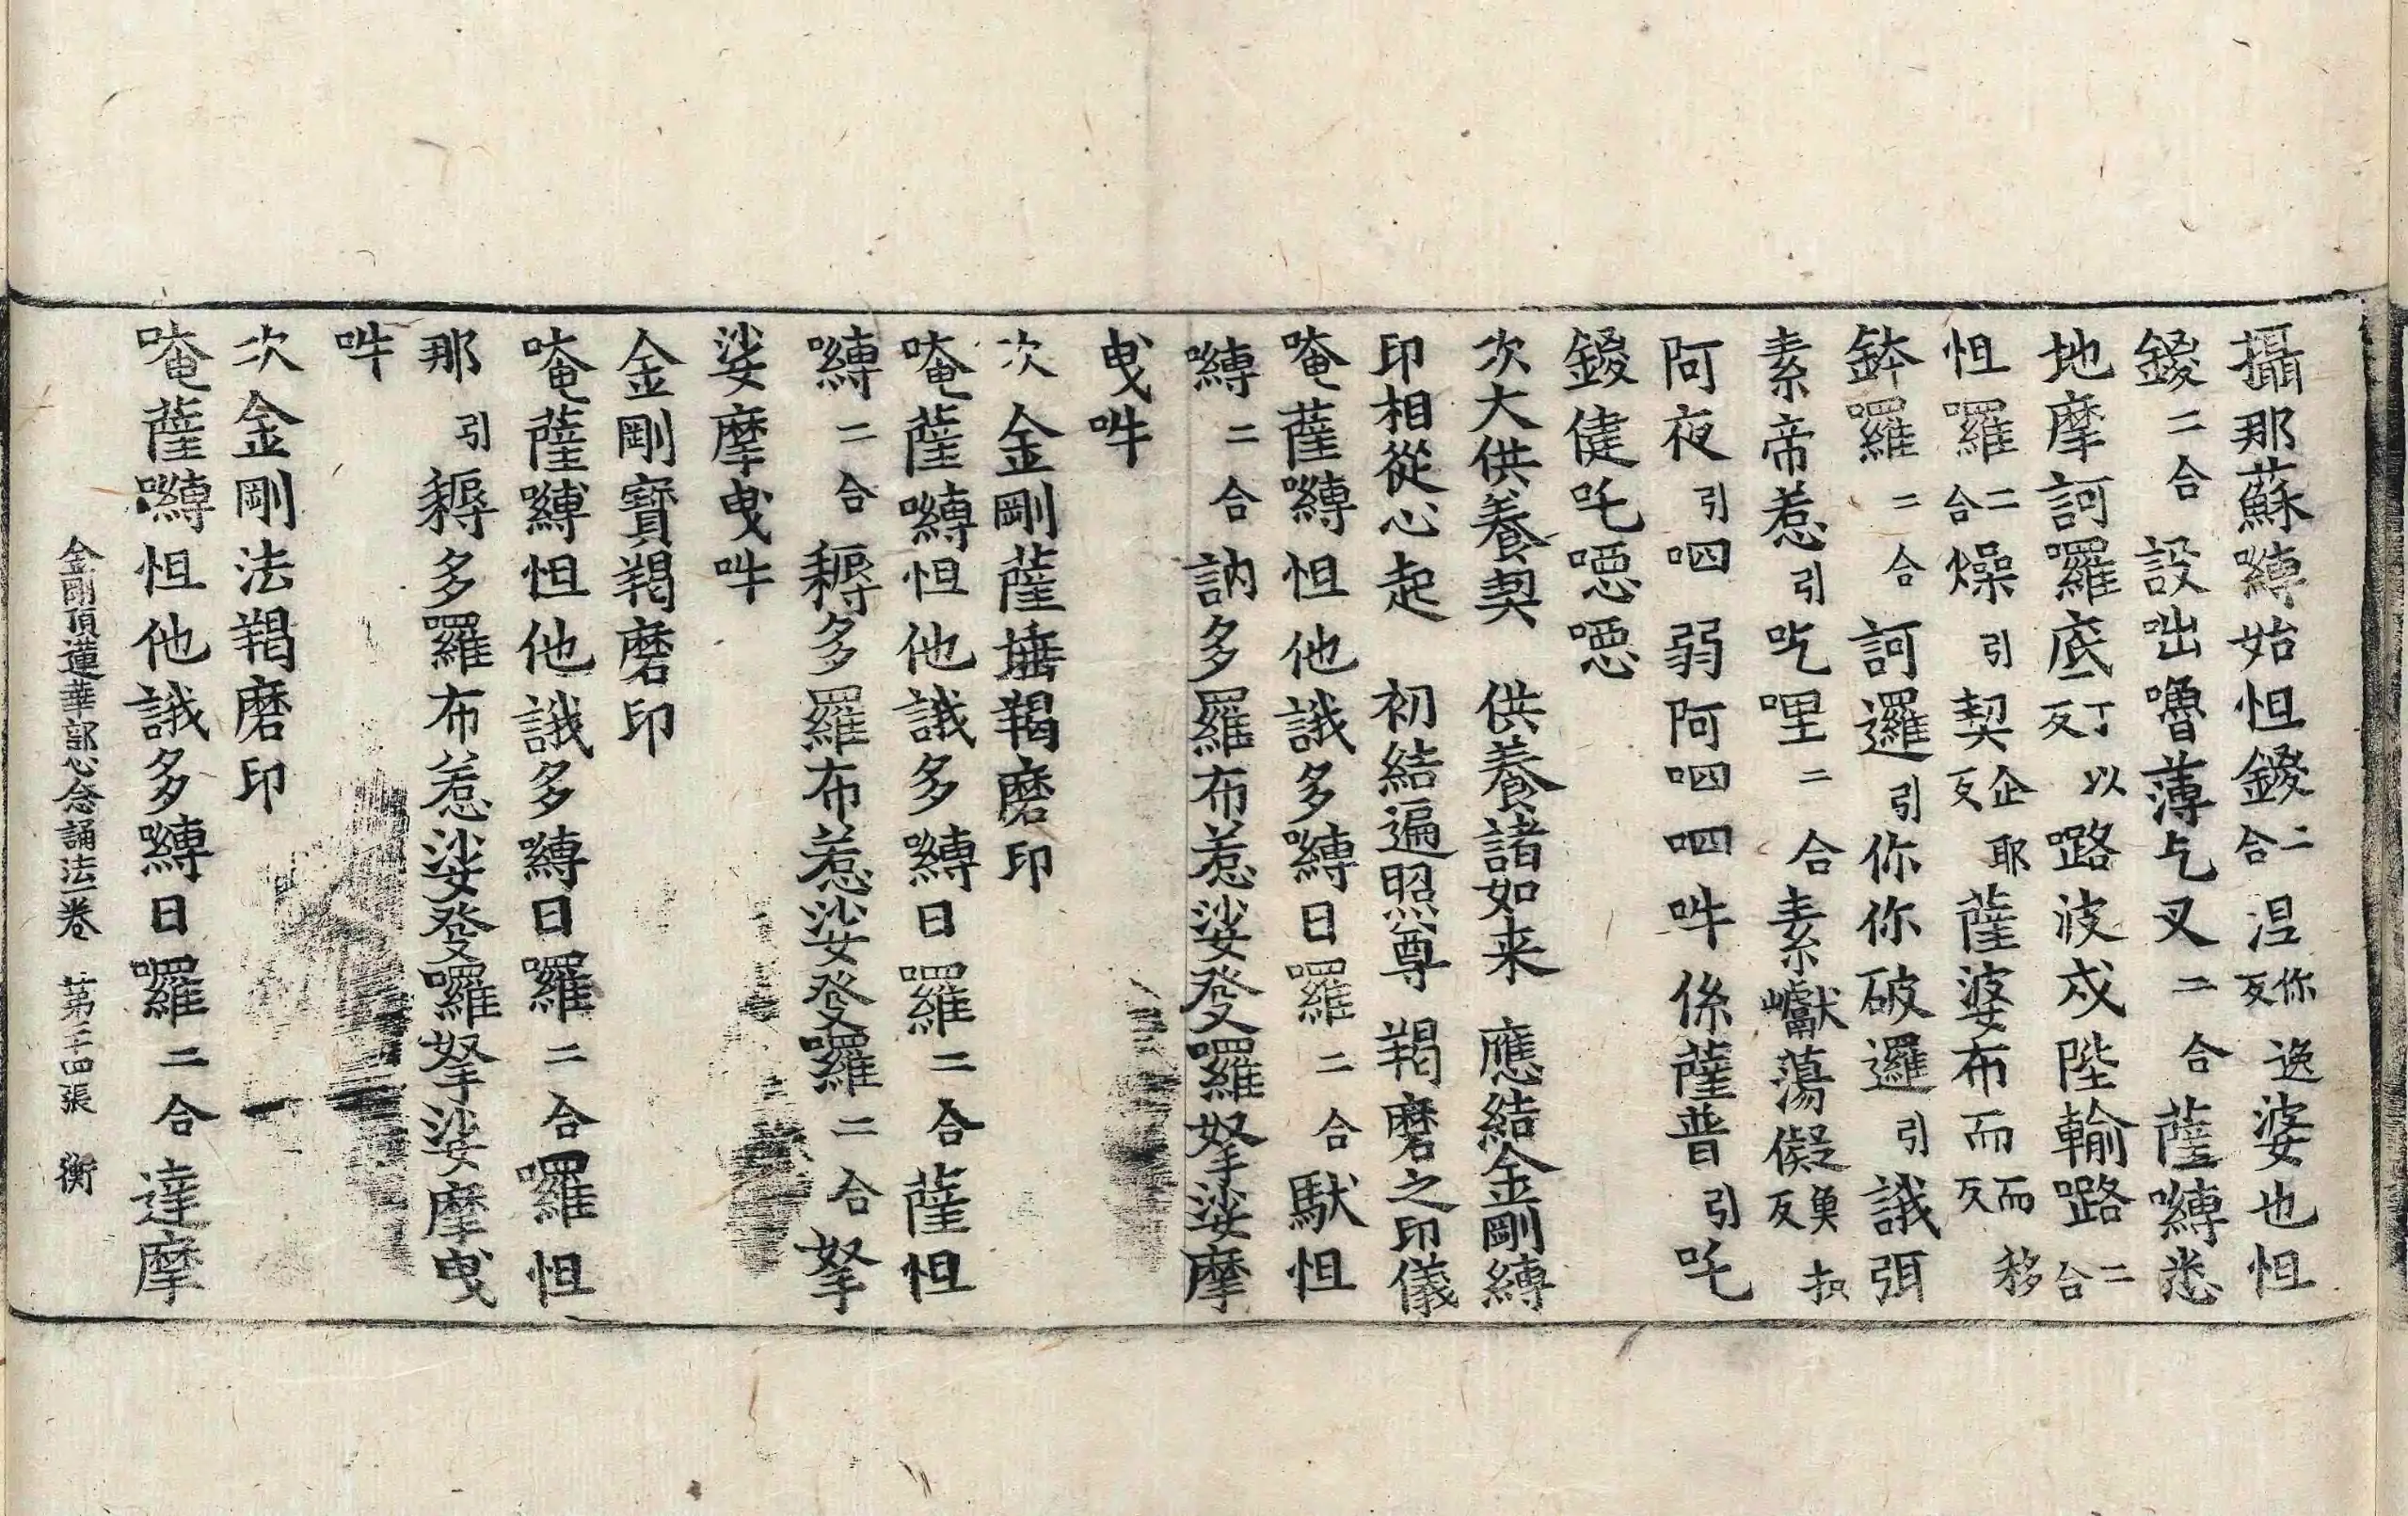 攝那蘇嚩始怛鑁二合涅你逸反婆也怛
鑁二合設咄嚕薄乞叉二合薩嚩悉
地摩訶囉底丁以反㗚波㳀陛輸㗚二合
怛囉二合燥引契企耶反薩婆布而而移反
鉢囉二合訶邏引你你破邏引誐弭
素帝惹引吃哩二合素巘蕩儗異執反
阿夜引呬弱阿呬呬吽係薩普引吒
鑁健吒噁噁
次大供養契　供養諸如来　應結金剛縛
印相從心起　初結遍照尊　羯磨之印儀
唵薩嚩怛他誐多嚩日囉二合馱怛
嚩二合訥多羅布惹娑發囉拏娑摩
曳吽
次金剛薩埵羯磨印
唵薩嚩怛他誐多嚩日囉二合薩怛
嚩二合耨多羅布惹娑發囉二合拏
娑摩曳吽
金剛寶羯磨印
唵薩嚩怛他誐多嚩日囉二合囉怛
那引耨多羅布惹娑發囉拏娑摩曳
吽
次金剛法羯磨印
唵薩嚩怛他誐多嚩日囉二合達摩
金剛頂蓮華部心念誦法一卷　第三十四張　衡